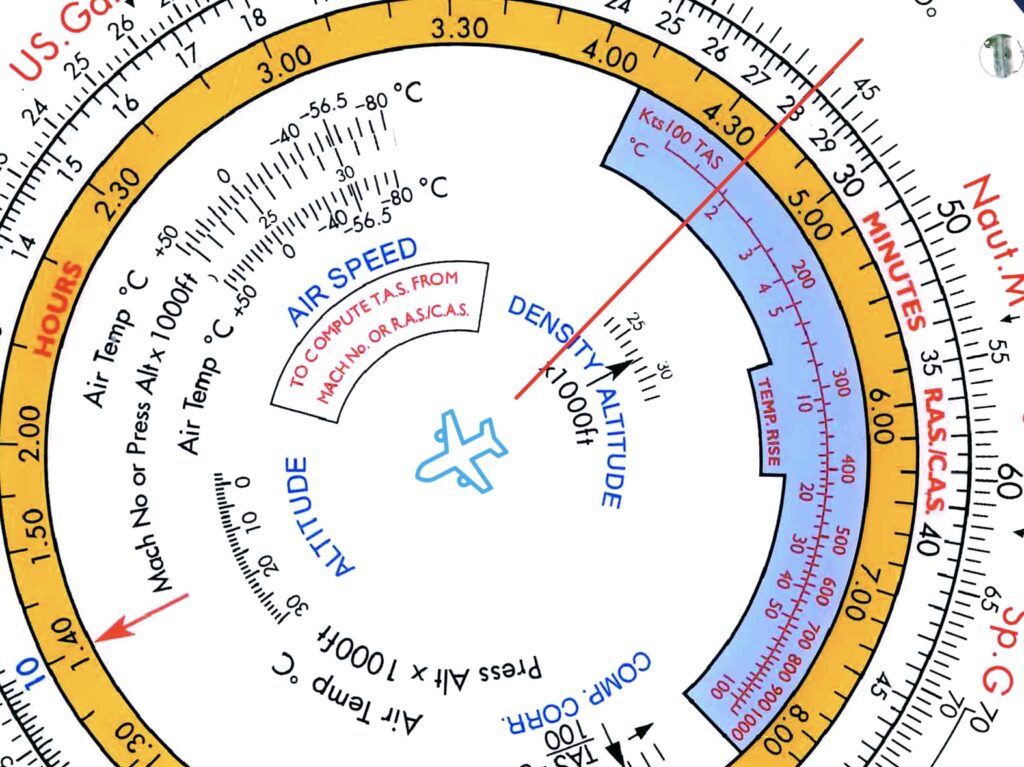 US.Gal
24
25
26
18
17
16
15
14
24
25
26
27
28
29
30
45
50
55
60
65
70
70
Naut.M
Sp.G
MINUTES
35
R.A.S./C.A.S.
40
45
10
HOURS
1.30
1.40
1.50
2.00
2.30
3.00
3.30
4.00
4.30
5.00
6.00
7.00
8.00
+50
0
-40
-56.5
-80 °C
25
30
+50
0
-40
-56.5
-80 °C
Air Temp °C
Mach No or Press Alt x 1000ft
Air Temp °C
AIR SPEED
TO COMPUTE T.A.S. FROM
MACH No. OR R.A.S./C.A.S.
DENSITY ALTITUDE
x1000ft
25
30
ALTITUDE
0
10
20
30
Press Alt x 1000ft
Air Temp °C
COMP. CORR.
TAS
100
Kts100 TAS
°C
200
300
400
500
600
700
800
900
1000
2
3
4
5
10
20
30
40
50
100
TEMP. RISE